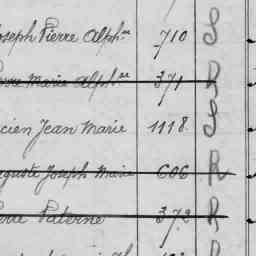 Joseph Pierre Alphse 710 S
Pierre Marie Alphse 371 R
Lucien Jean Marie 1118 S
Auguste Joseph Marie 606 R
Pierre Paterne 372 R